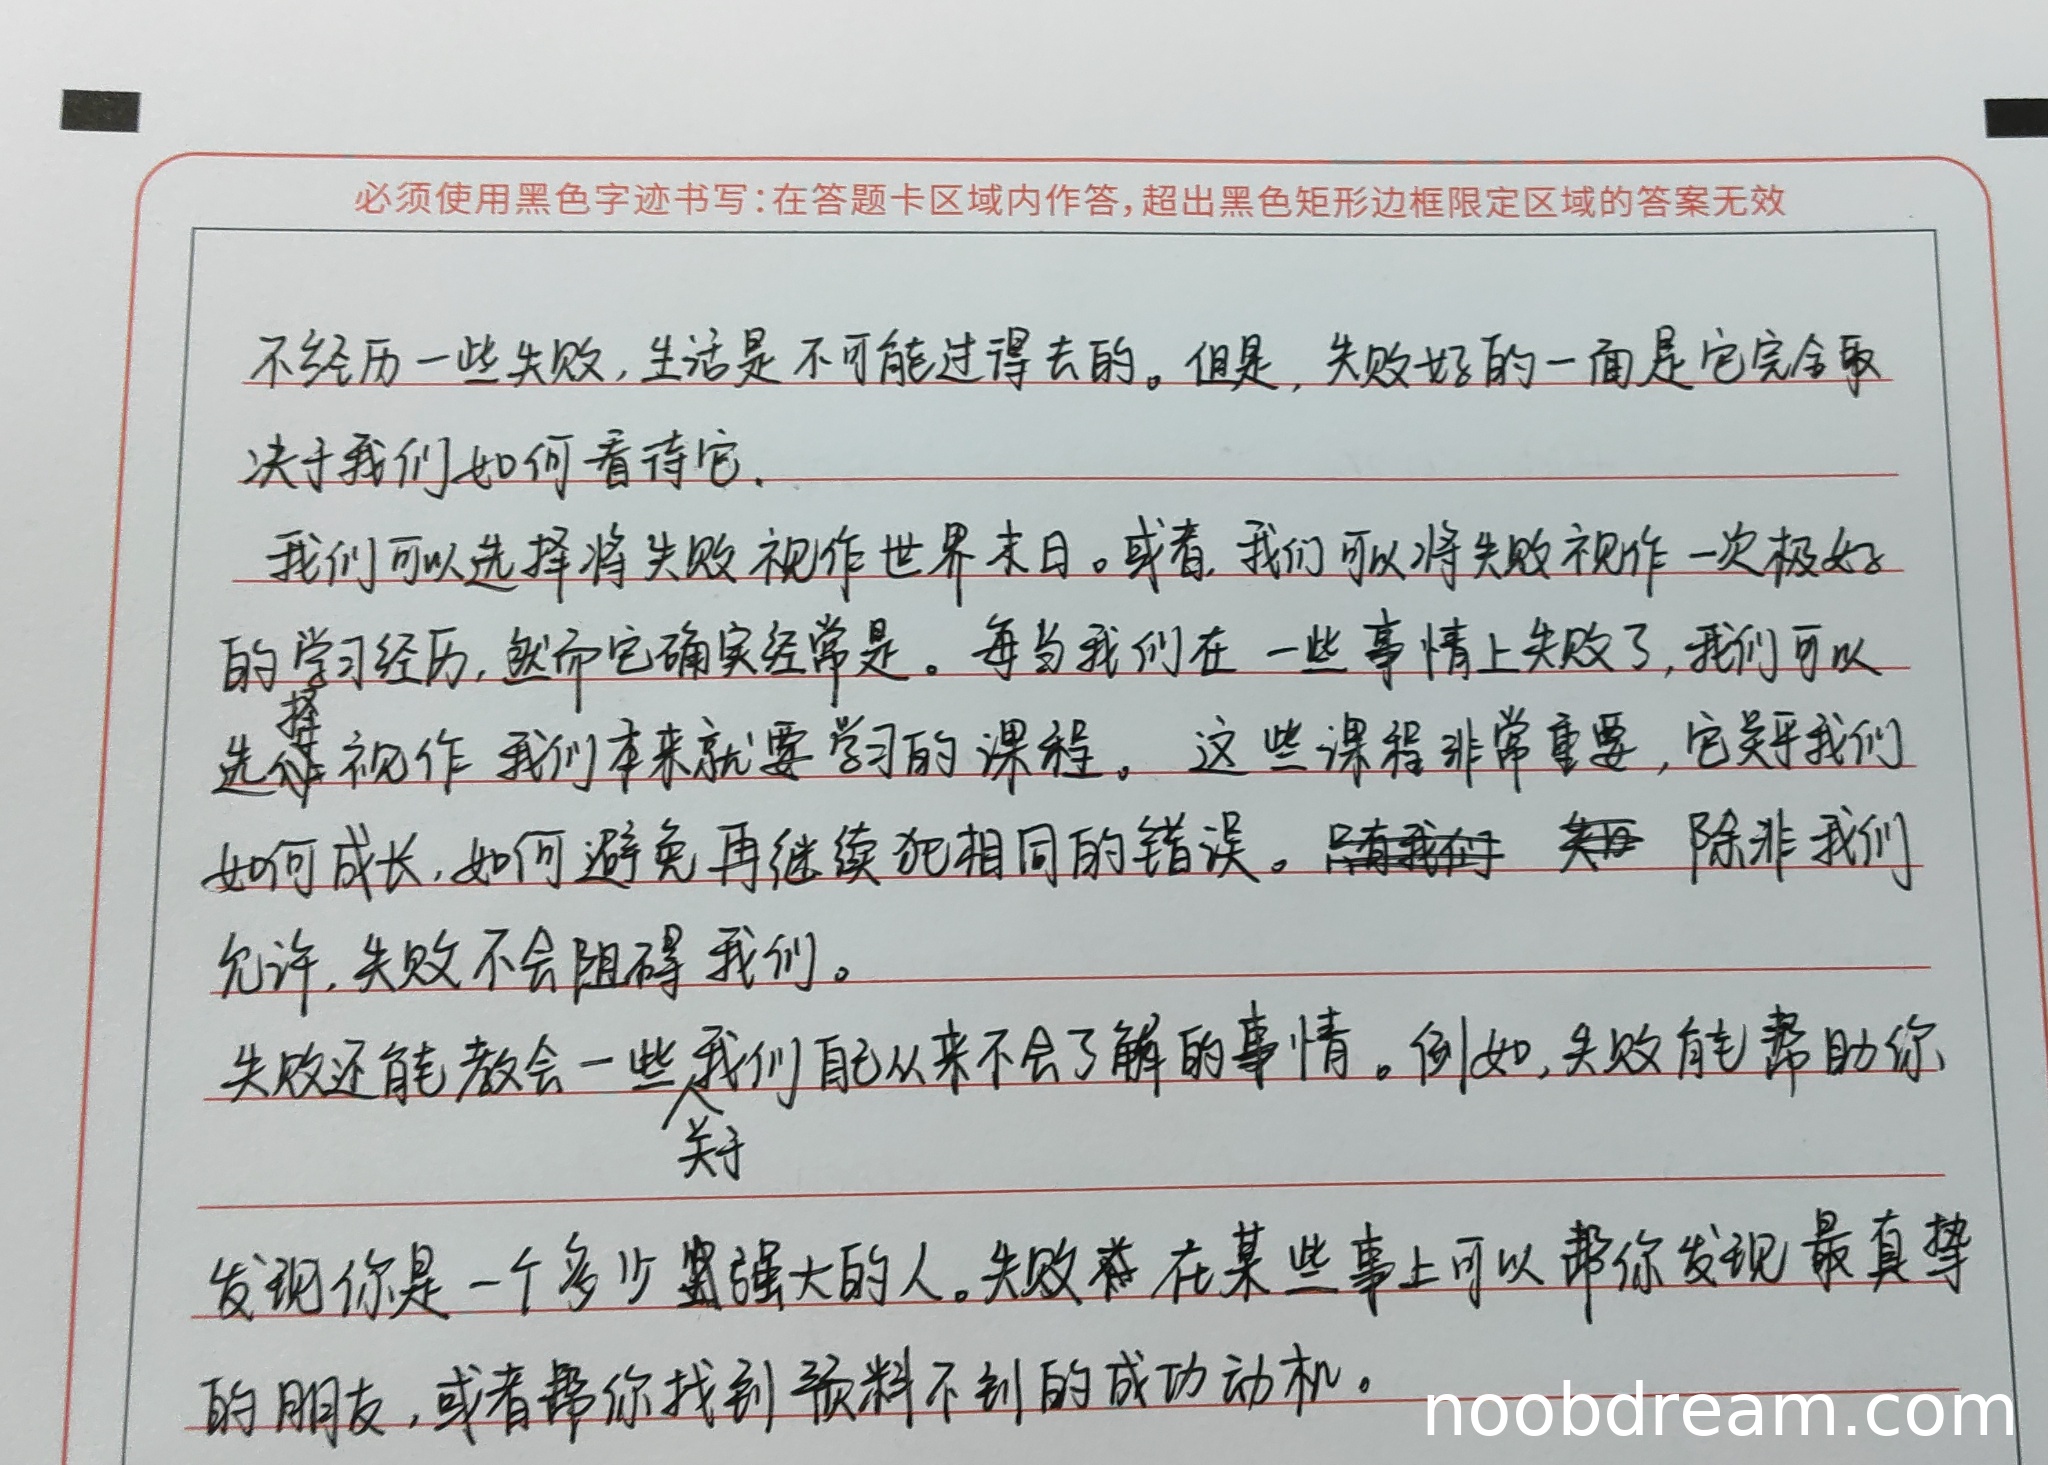 必须使用黑色字迹书写:在答题卡区域内作答,超出黑色矩形边框限定区域的答案无效
不经历一些失败,生活是不可能过得去的。但是,失败好的一面是它完全取
决于我们如何看待它.
我们可以选择将失败视作世界末日。或者,我们可以将失败视作一次极好
的学习经历,然而它确实经常是。每当我们在一些事情上失败了,我们可以
选择视作我们本来就要学习的课程。这些课程非常重要,它关乎我们
如何成长,如何避免再继续犯相同的错误。除非我们
允许,失败不会阻碍我们。
失败还能教会一些关于我们自己从来不会了解的事情。例如,失败能帮助你
发现你是一个多少强大的人。失败在某些事上可以帮你发现最真挚
的朋友,或者帮你找到预料不到的成功动机。
noobdream.com